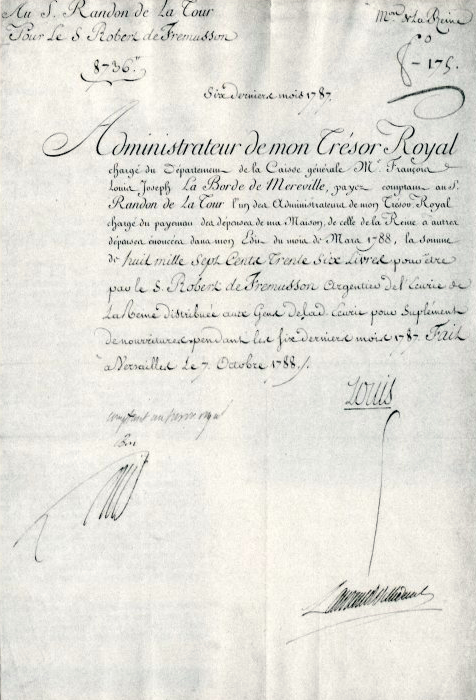 Au S. Randon de La Tour
Mon de la Reine
Pour Le S Robert de Fremusson
8736.
175.
Six derniers mois 1787.
Administrateur de mon Trésor Royal
chargé du Département de la Caisse générale Me François
Louis Joseph La Borde de Mereville, payez comptant au S.r
Randon de La Tour l'un des Administrateurs de mon Trésor Royal
chargé du payement des dépenses de ma Maison, de celle de la Reine & autres
dépenses énoncées dans mon Edit du mois de Mars 1788, la somme
de huit mille Sept Cents Trente Six Livres pour être
par le S. Robert de Fremusson Argentier de l'Ecurie de
La Reine distribuée aux Gens de lad. Ecurie pour Suplément
de nourritures pendant les six derniers mois 1787. Fait
à Versailles Le 7. Octobre 1788.
Louis
comptant au
Bon